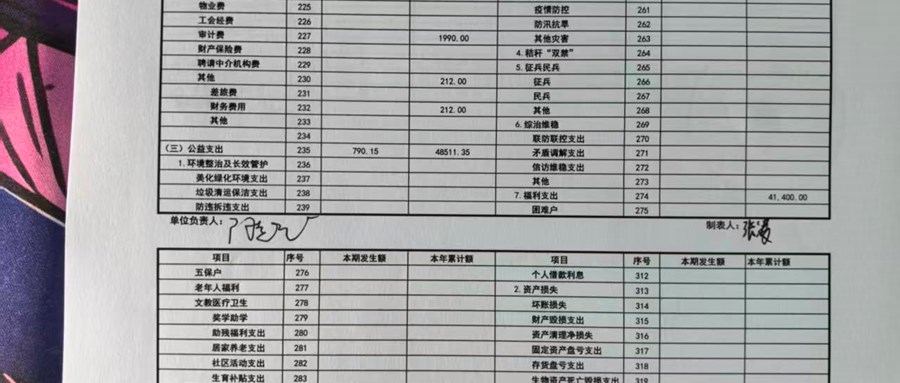 物业费 225 疫情防控 261
工会经费 226 防汛抗旱 262
审计费 227 1990.00 其他灾害 263
财产保险费 228 4.秸秆“双禁” 264
聘请中介机构费 229 5.征兵民兵 265
其他 230 212.00 征兵 266
差旅费 231 民兵 267
财务费用 232 212.00 其他 268
其他 233 6.综治维稳 269
234 联防联控支出 270
(三)公益支出 235 790.15 48511.35 矛盾调解支出 271
1.环境整治及长效管护 236 信访维稳支出 272
美化绿化环境支出 237 其他 273
垃圾清运保洁支出 238 7.福利支出 274 41,400.00
防违拆违支出 239 困难户 275
单位负责人: 制表人:
项目 序号 本期发生额 本年累计额 项目 序号 本期发生额 本年累计额
五保户 276 个人借款利息 312
老年人福利 277 2.资产损失 313
文教医疗卫生 278 坏账损失 314
奖学助学 279 财产毁损支出 315
助残福利支出 280 资产清理净损失 316
居家养老支出 281 固定资产盘亏支出 317
社区活动支出 282 存货盘亏支出 318
生育补贴支出 283 生物资产死亡毁损支出 319